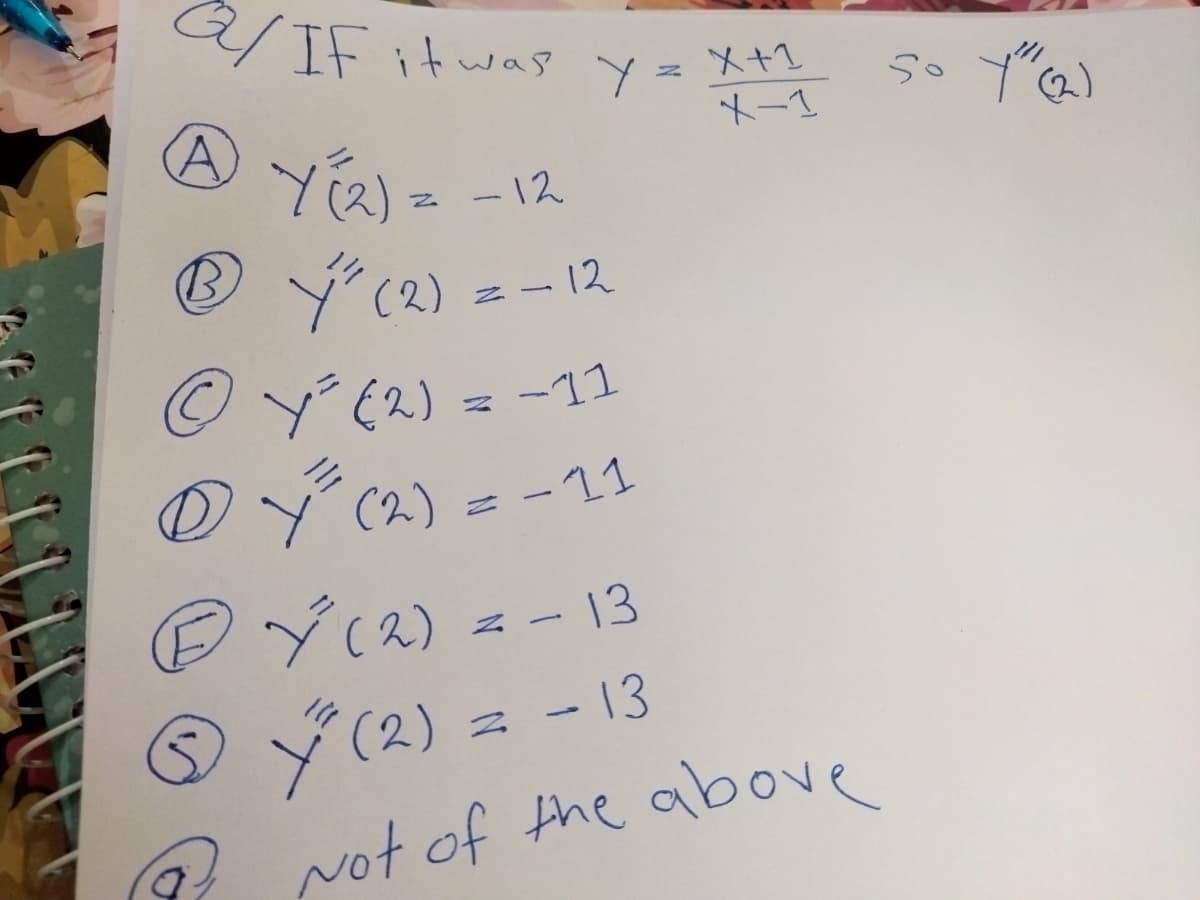 Q/ IF it was y = x+1/x-1 so y'''(2)
A y''(2) = -12
B y'''(2) = -12
C y''(2) = -11
D y'''(2) = -11
E y''(2) = -13
S y'''(2) = -13
a Not of the above